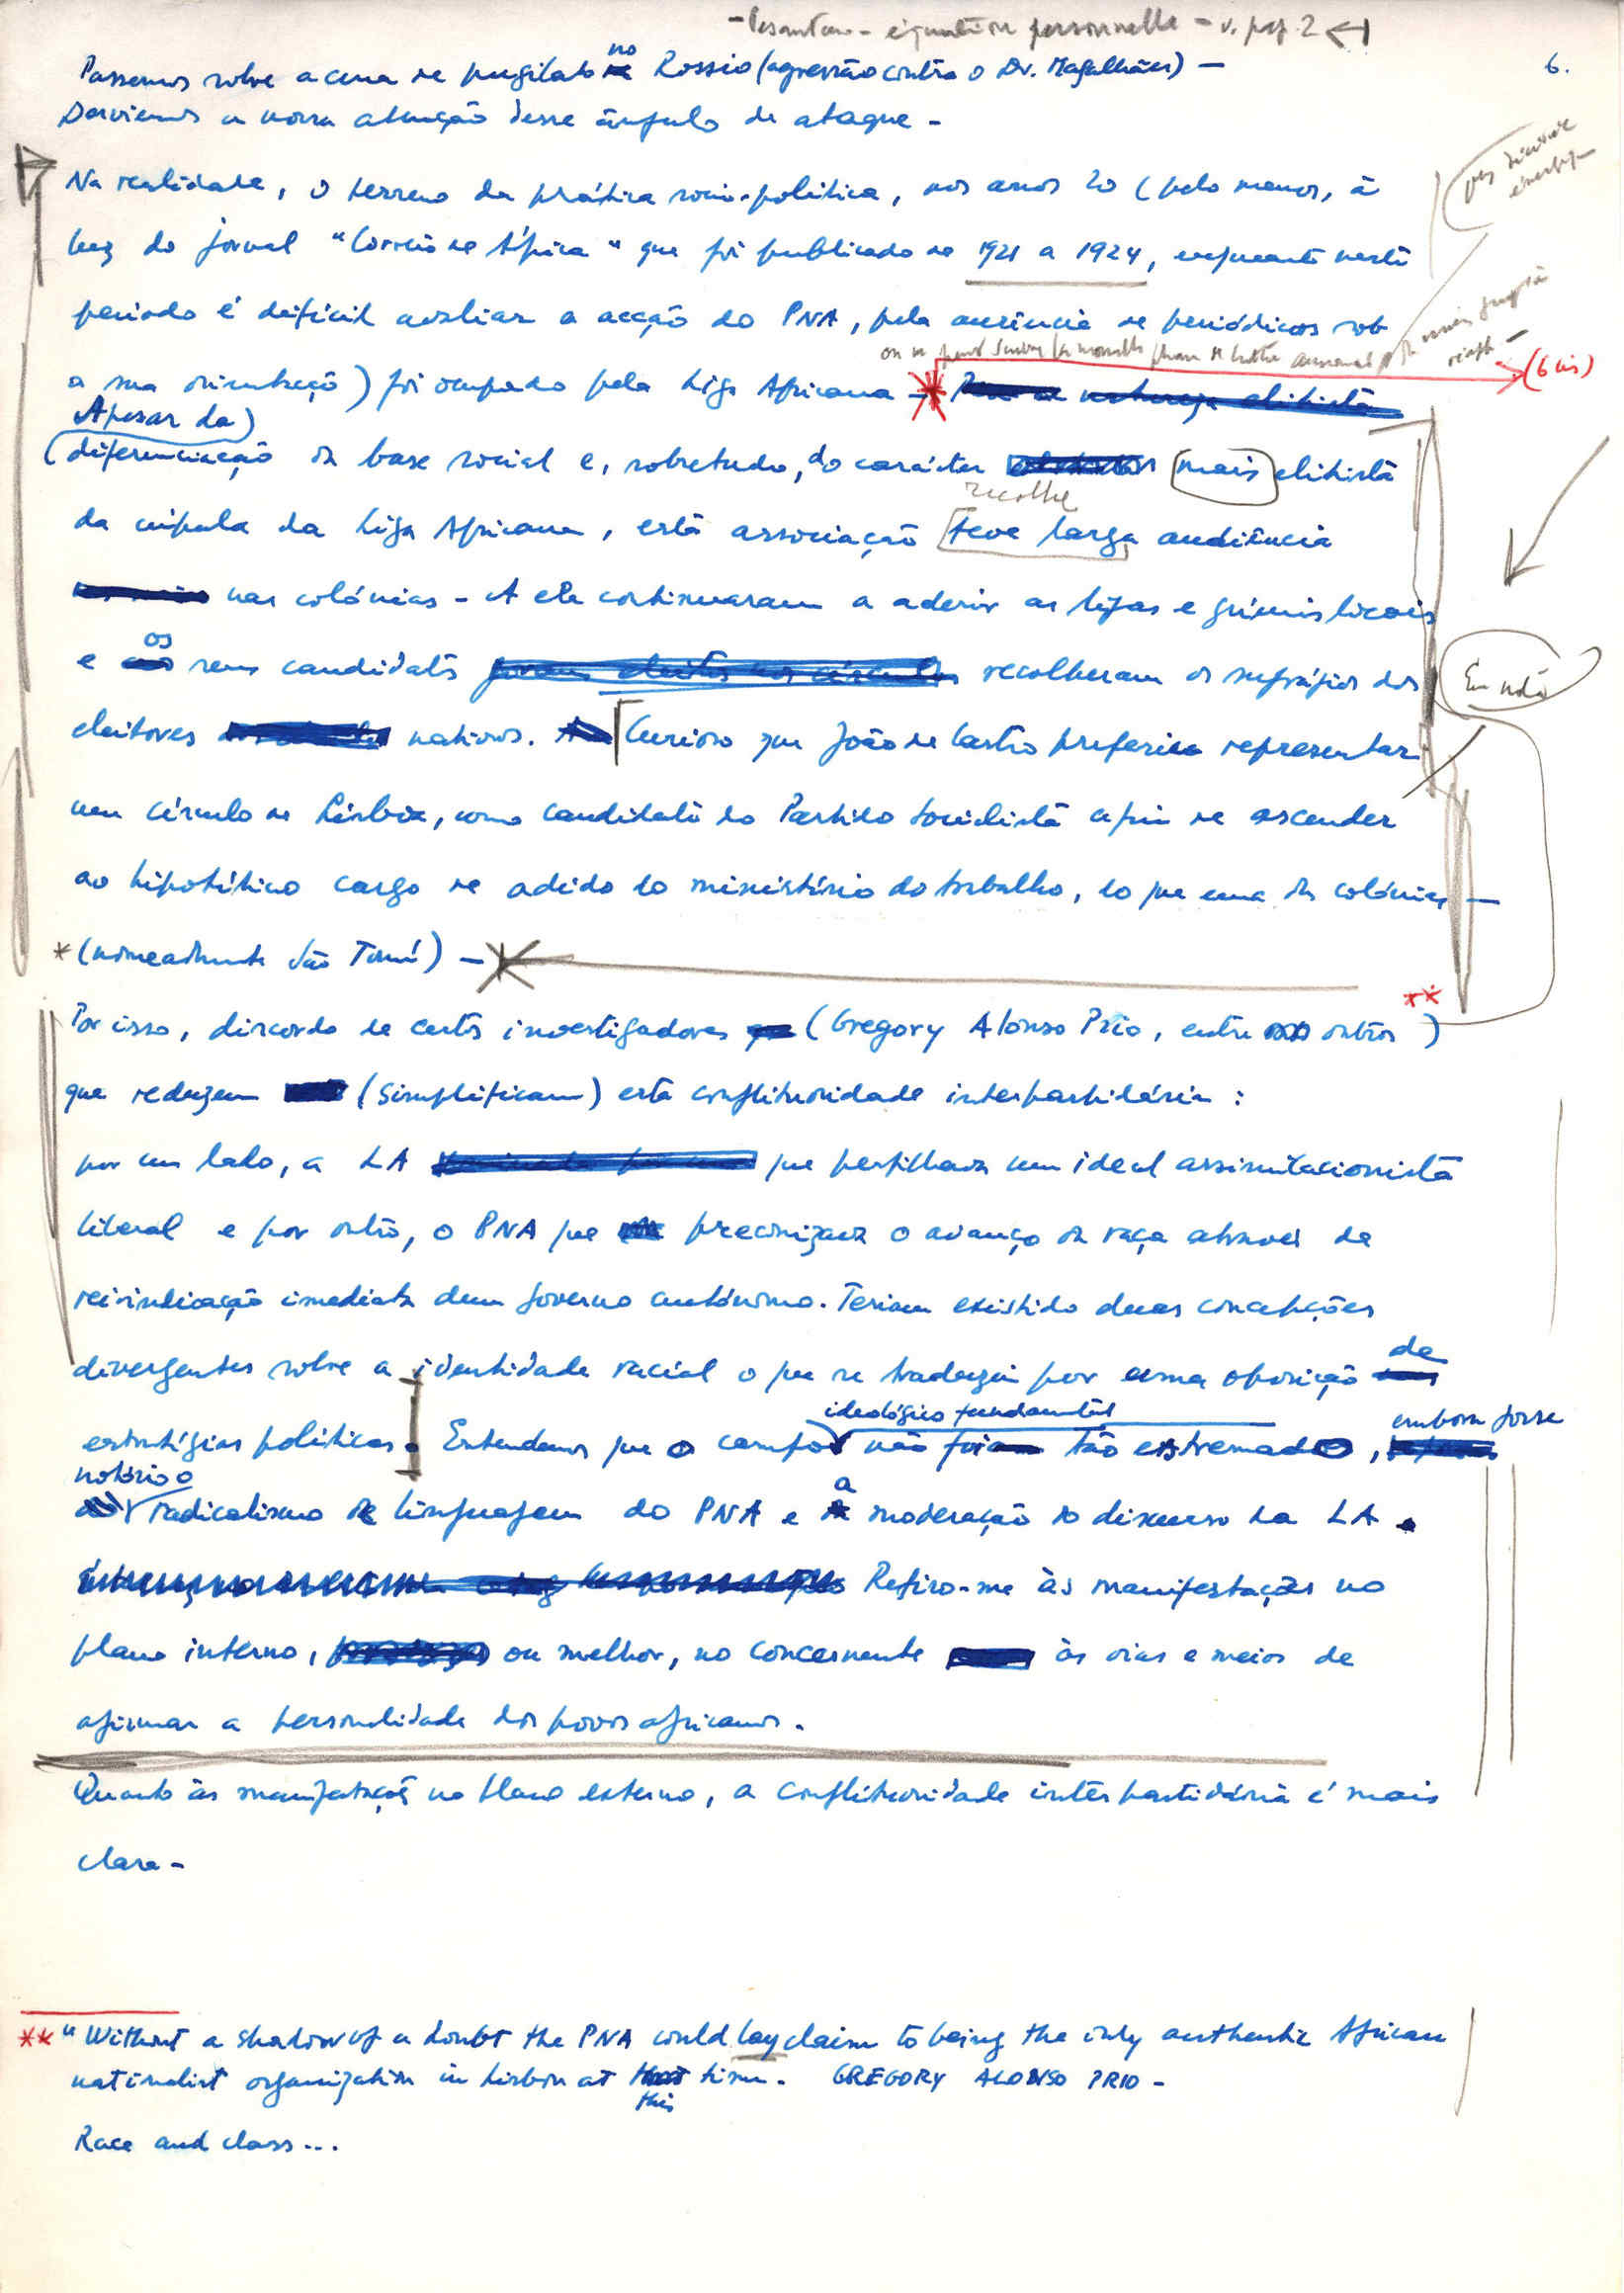 équation personnelle - v. pag. 2
6.
Passemos sobre a cena de pugilato no Rossio (agressão contra o Dr. Magalhães) -
Desviemos a nossa atenção desse ângulo de ataque -
Na realidade, o terreno da prática socio-política, nos anos 20 (pelo menos, à
luz do jornal "Correio de África" que foi publicado de 1921 a 1924, enquanto neste
período é difícil avaliar a acção do PNA, pela ausência de periódicos sob
a sua orientação) foi ocupado pela Liga Africana - * (6 bis)
Apesar da
diferenciação da base social e, sobretudo, do carácter mais elitista
recolhe
da cúpula da Liga Africana, esta associação teve larga audiência
nas colónias - A ela continuaram a aderir as ligas e grémios locais
e os seus candidatos recolheram os sufrágios dos
eleitores nativos. Curioso que João de Castro preferisse representar
um círculo de Lisboa, como candidato do Partido Socialista afim de ascender
ao hipotético cargo de adido do ministério do trabalho, do que uma das colónias -
* (nomeadamente São Tomé) -
Por isso, discordo de certos investigadores (Gregory Alonso Prio, entre outros **)
que reduzem (simplificam) esta conflituosidade interpartidária :
por um lado, a LA que perfilhava um ideal assimilacionista
liberal e por outro, o PNA que preconizava o avanço da raça através da
reivindicação imediata dum governo autónomo. Teriam existido duas concepções
divergentes sobre a identidade racial o que se traduzia por uma oposição de
estratégias políticas. Entendemos que o campo ideológico fundamental não foi tão extremado, embora fosse
notório o radicalismo de linguagem do PNA e a moderação do discurso da LA.
Refiro-me às manifestações no
plano interno, ou melhor, no concernente às vias e meios de
afirmar a personalidade dos povos africanos.
Quanto às manifestações no plano externo, a conflituosidade interpartidária é mais
clara -
** "Without a shadow of a doubt the PNA could lay claim to being the only authentic African
nationalist organization in Lisbon at this time. GREGORY ALONSO PRIO -
Race and class...